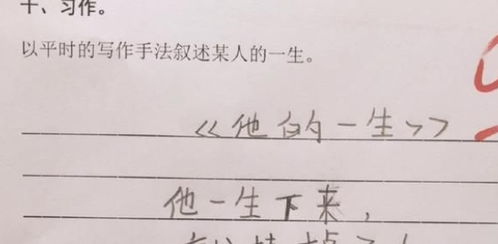 十、习作。
以平时的写作手法叙述某人的一生。
《他的一生》
他一生下来，